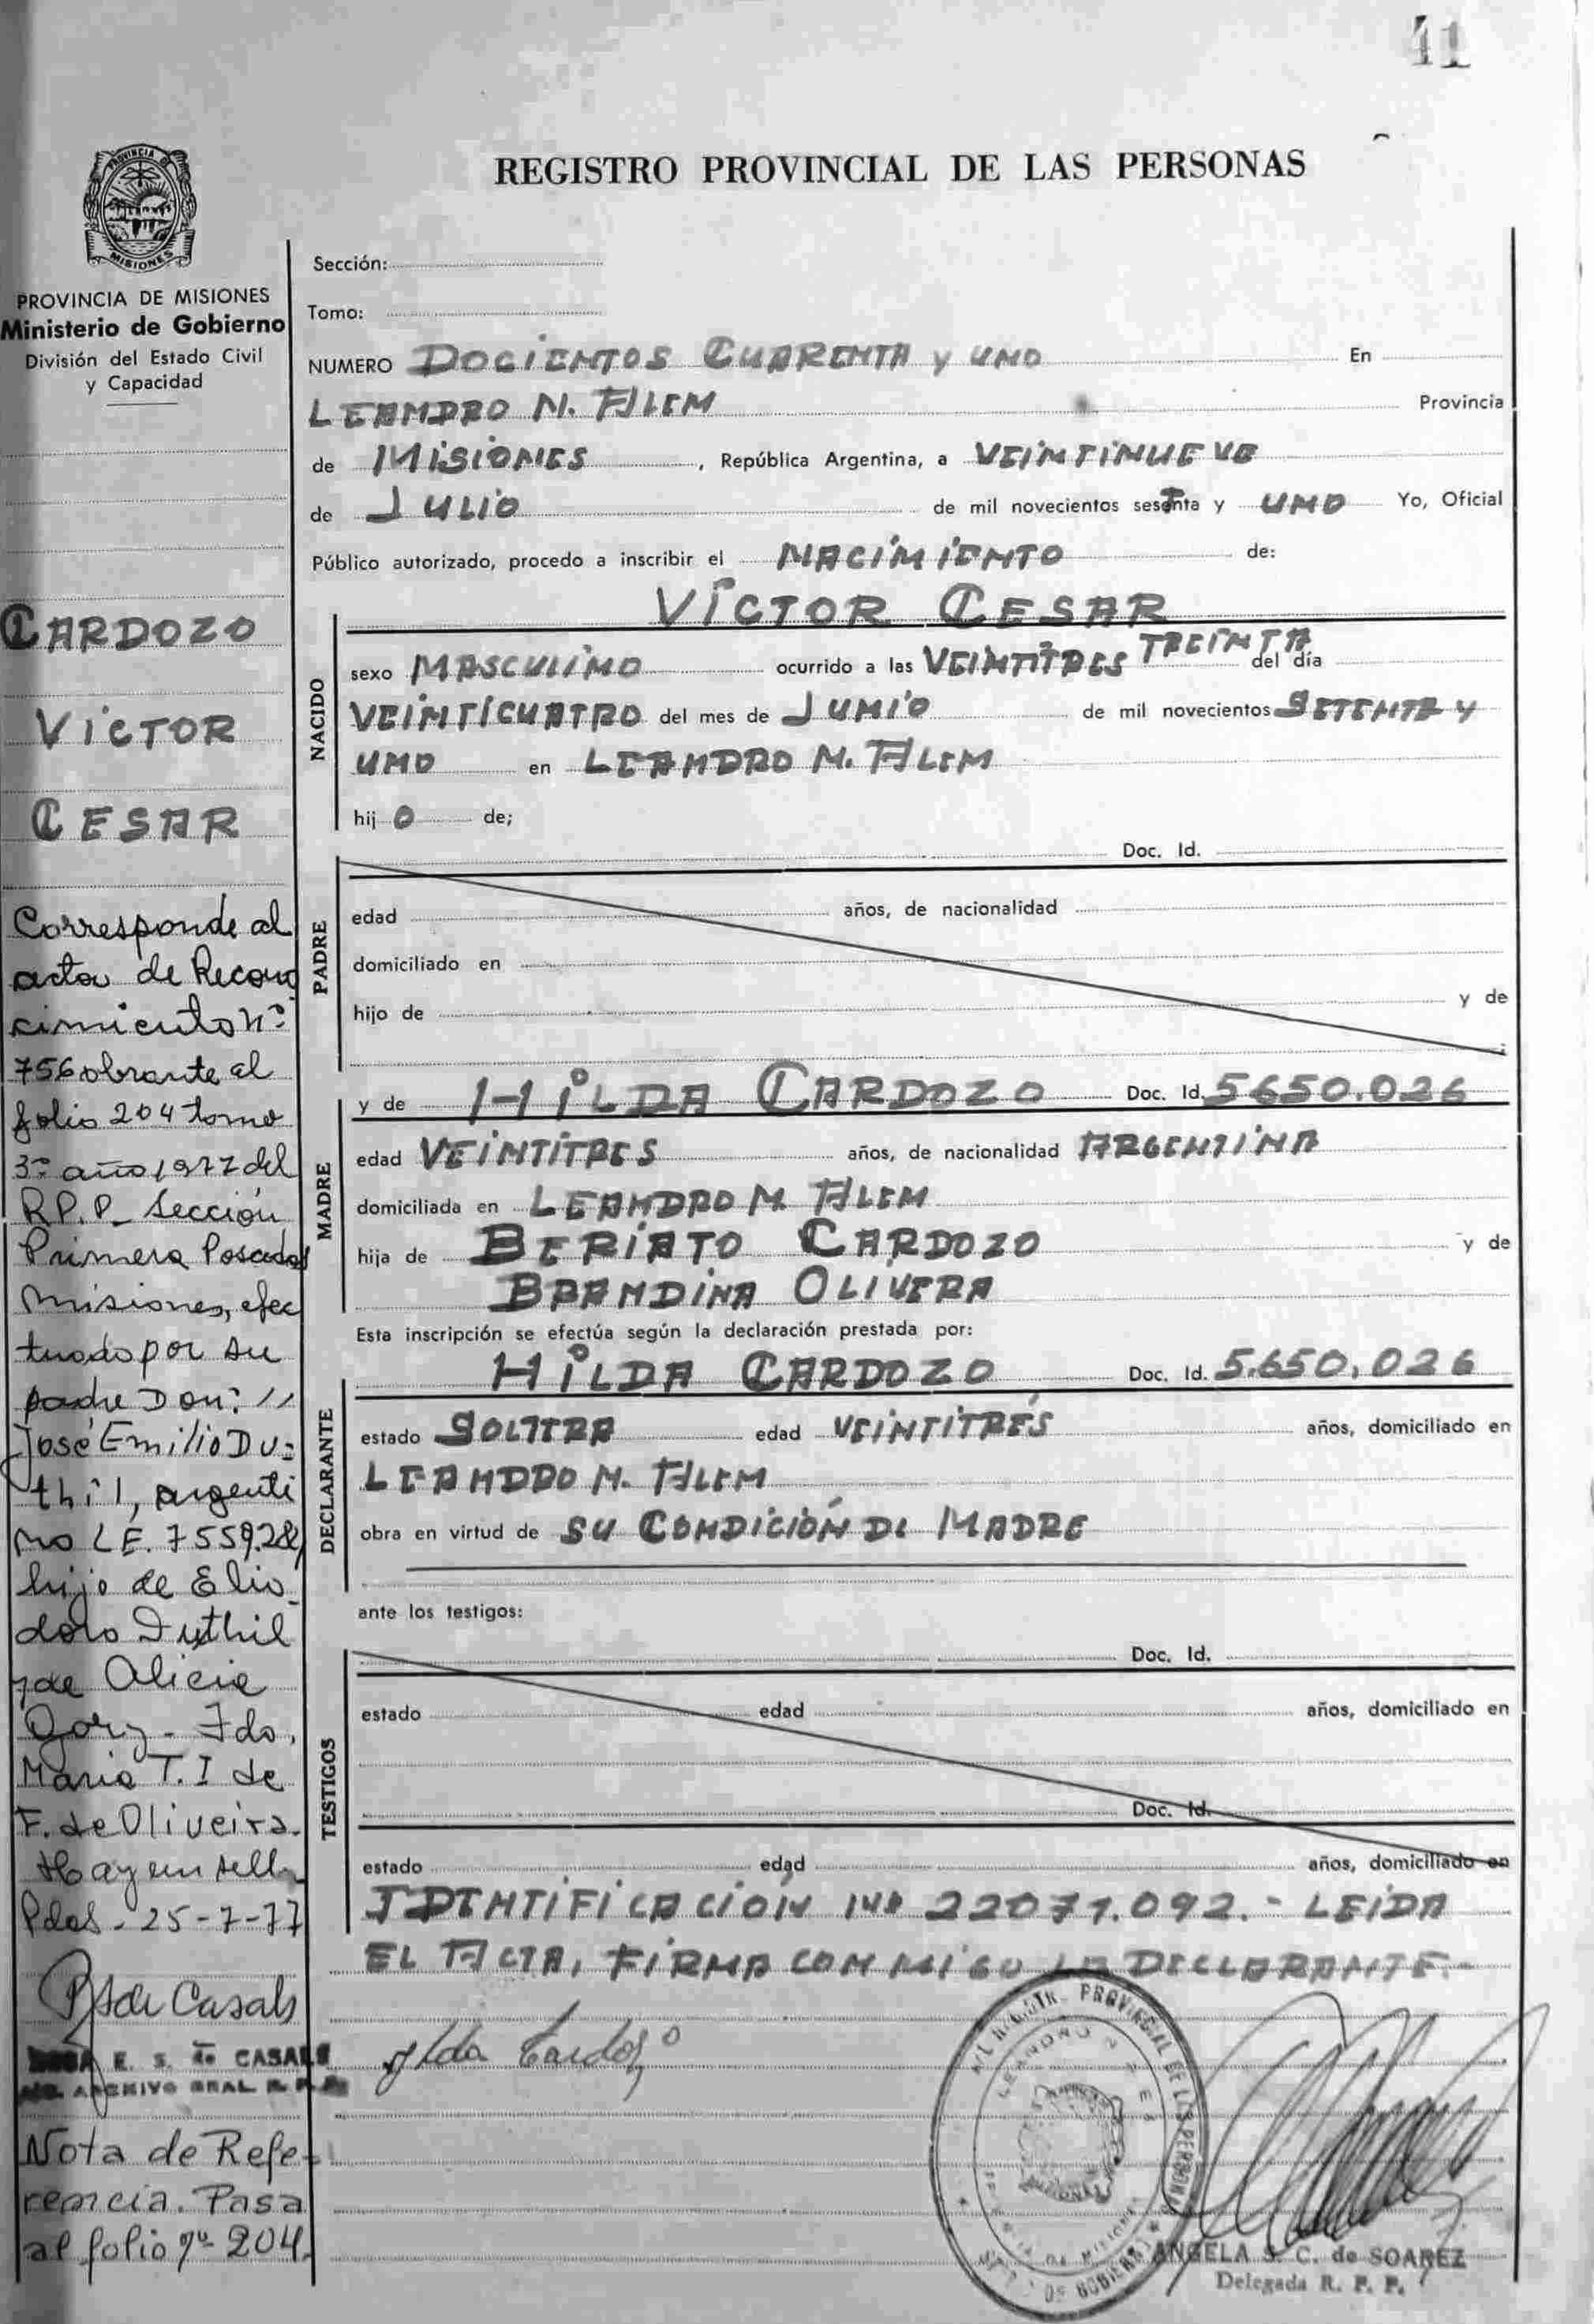 41
REGISTRO PROVINCIAL DE LAS PERSONAS
PROVINCIA DE
MISIONES
PROVINCIA DE MISIONES
Ministerio de Gobierno
División del Estado Civil
y Capacidad
CARDOZO
VICTOR
CESAR
Corresponde al
acta de Recono
cimiento Nº
756 obrante al
folio 204 tomo
3º año 1977 del
R.P.P_ Sección
Primera Posadas
Misiones, efec
tuado por su
padre Don: //
José Emilio Du=
thil, argenti
no LE. 7559.28
hijo de Elio_
doro Duthil
y de Alicia
Fdo.
Maria T. I de
F. de Oliveira.
Hay un sello
Pdas - 25-7-77
de Casals
E. S. de CASALS
ARCHIVO GRAL R. P. P.
Nota de Refe-
rencia. Pasa
al folio nº 204.
Sección:
Tomo:
NUMERO DOCIENTOS CUARENTA y UNO En
LEANDRO N. ALEM Provincia
de MISIONES , República Argentina, a VEINTINUEVE
de JULIO de mil novecientos sesenta y UNO Yo, Oficial
Público autorizado, procedo a inscribir el NACIMIENTO de:
VICTOR CESAR
NACIDO
sexo MASCULINO ocurrido a las VEINTITRES TREINTA del día
VEINTICUATRO del mes de JUNIO de mil novecientos SETENTA y
UNO en LEANDRO N. ALEM
hij O de;
Doc. Id.
PADRE
edad años, de nacionalidad
domiciliado en
hijo de y de
y de HILDA CARDOZO Doc. Id. 5650.026
MADRE
edad VEINTITRES años, de nacionalidad ARGENTINA
domiciliada en LEANDRO N. ALEM
hija de BERIATO CARDOZO y de
BRANDINA OLIVERA
Esta inscripción se efectúa según la declaración prestada por:
HILDA CARDOZO Doc. Id. 5.650.026
DECLARANTE
estado SOLTERA edad VEINTITRÉS años, domiciliado en
LEANDRO N. ALEM
obra en virtud de SU CONDICIÓN DE MADRE
ante los testigos:
Doc. Id.
TESTIGOS
estado edad años, domiciliado en
Doc. Id.
estado edad años, domiciliado en
IDENTIFICACIÓN Nº 22071.092.- LEIDA
EL ACTA, FIRMA CONMIGO LA DECLARANTE.-
Ilda Cardozo
PROVINCIAL DE LAS PERSONAS
LEANDRO N.
DE GOBIERNO
ANGELA S. C. de SOAREZ
Delegada R. P. P.